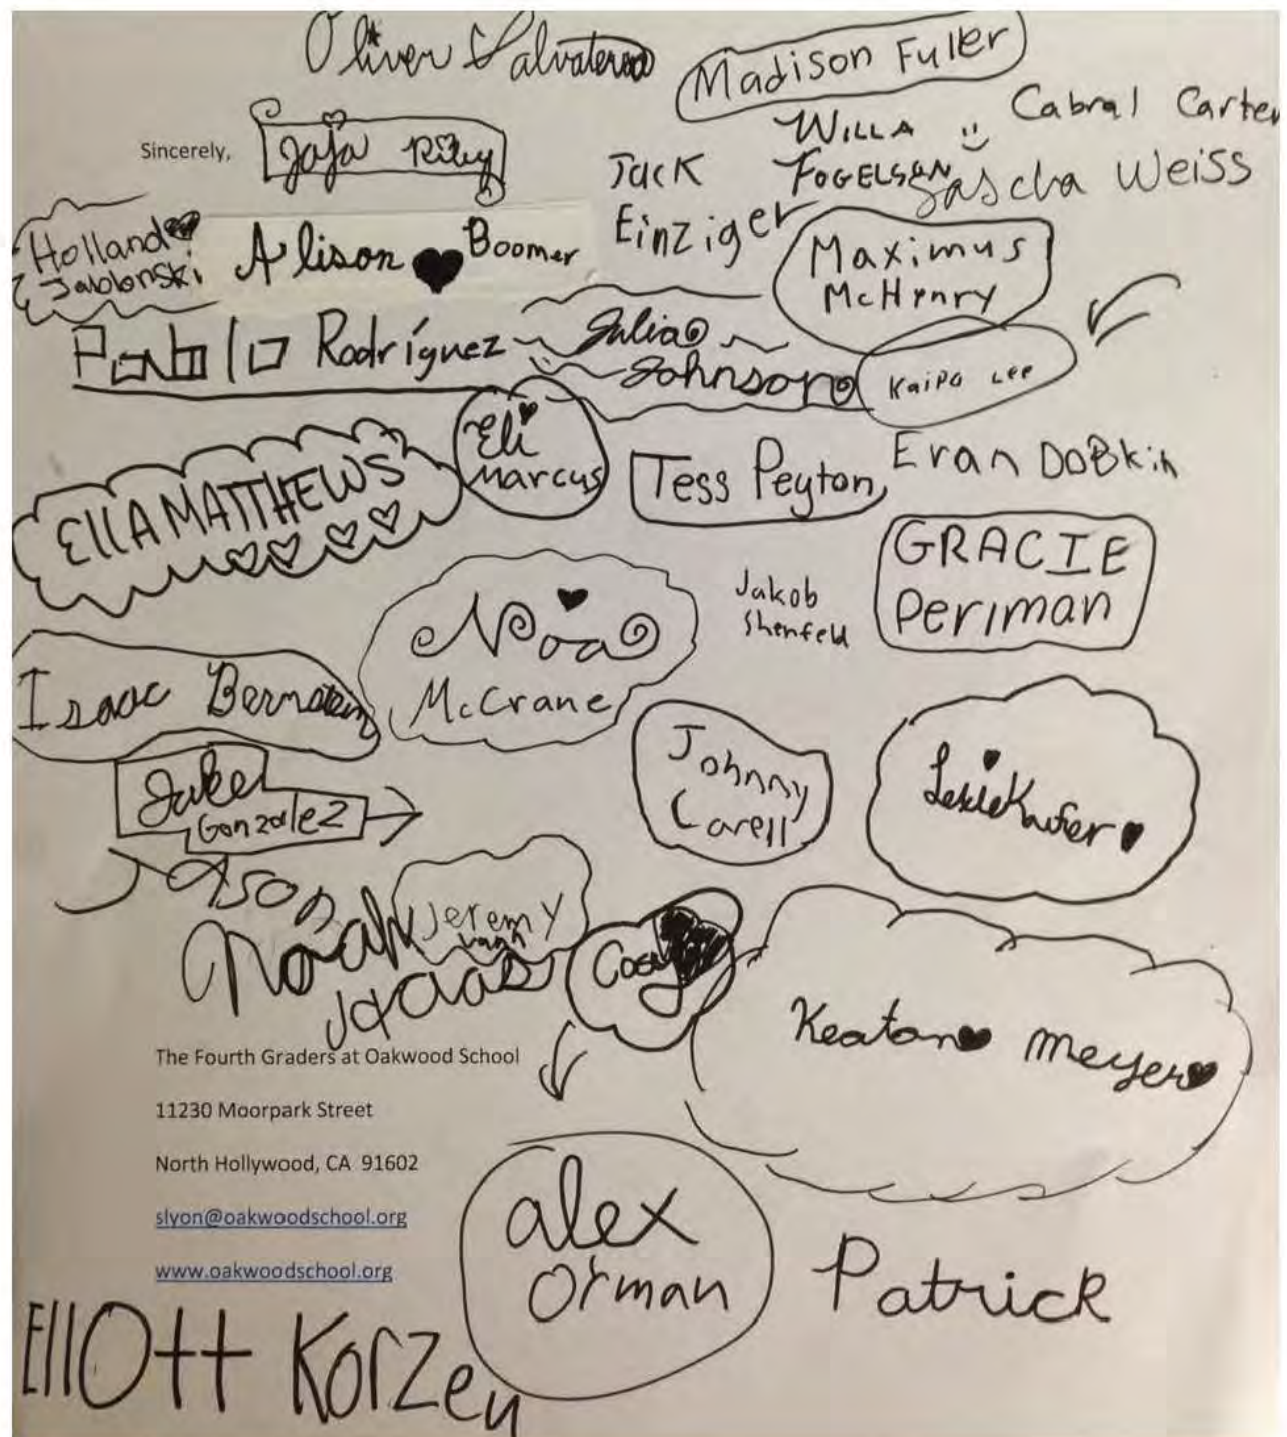 Oliver Salvaterra
Madison Fuller
Cabral Carter
WILLA
FOGELSON
Sincerely,
Jaja Riley
Jack
Einziger
Sascha Weiss
Holland
Jablonski
Alison Boomer
Maximus
McHenry
Pablo Rodríguez
Julia
Johnson
Kaipo Lee
Eli
Marcus
EllA MATTHEWS
Tess Peyton
Evan DOBkin
GRACIE
Periman
Noa
McCrane
Jakob
Shenfeld
Isaac Bernstein
Johnny
Carell
Jake
Gonzalez
Kaufer
Jason
Jeremy
Noah
Haas
Keaton Meyer
The Fourth Graders at Oakwood School
11230 Moorpark Street
North Hollywood, CA 91602
slyon@oakwoodschool.org
www.oakwoodschool.org
alex
Orman
Patrick
EllOtt Korzen